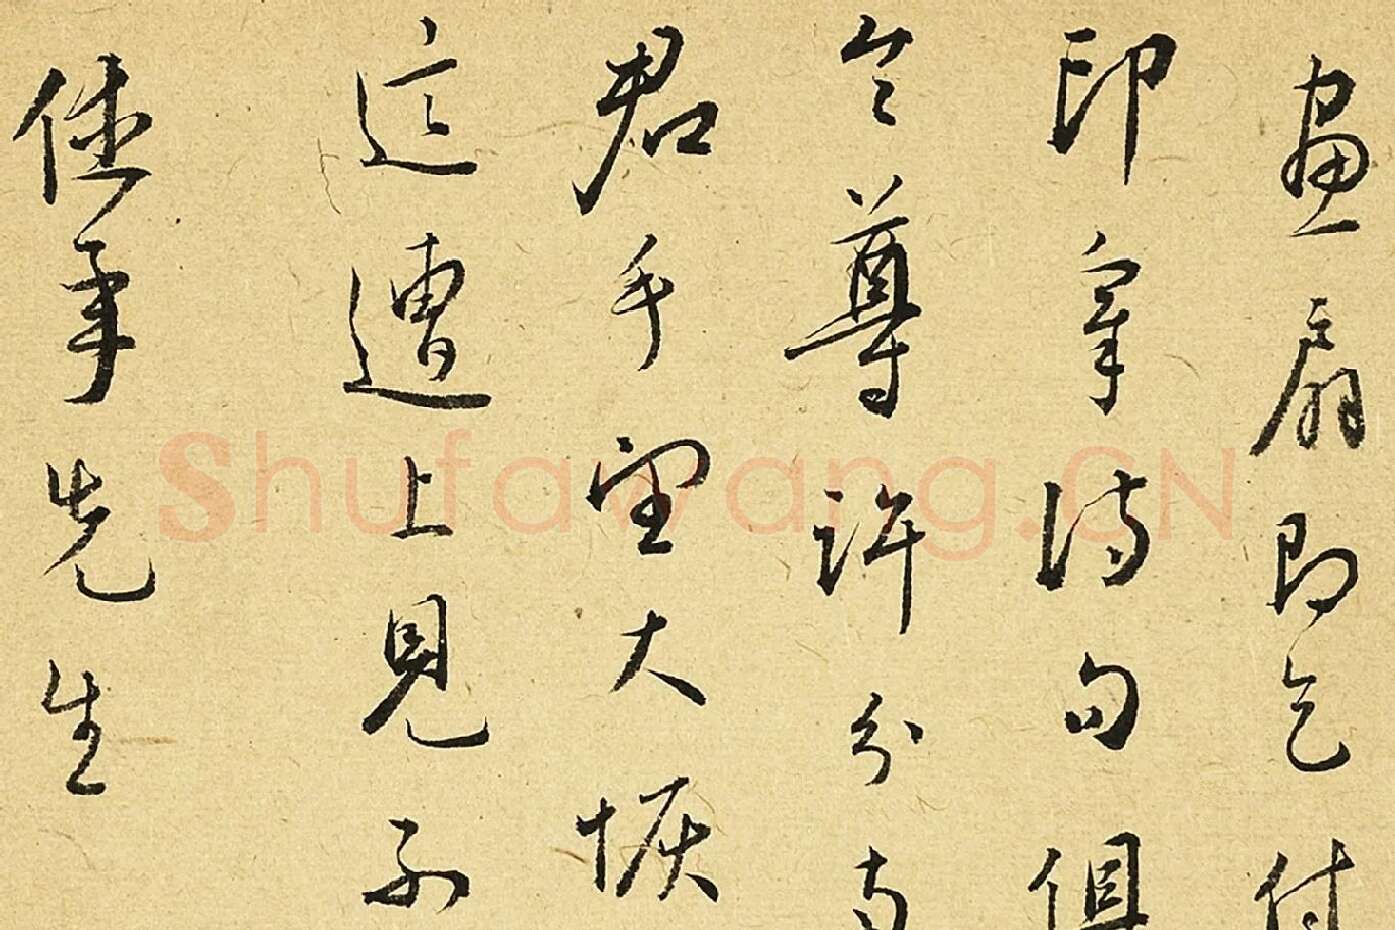 畫扇即乞付
印章詩句俱
令尊許分与
君手里大恢
這遭上見不
佳平先生
Shufawang.CN